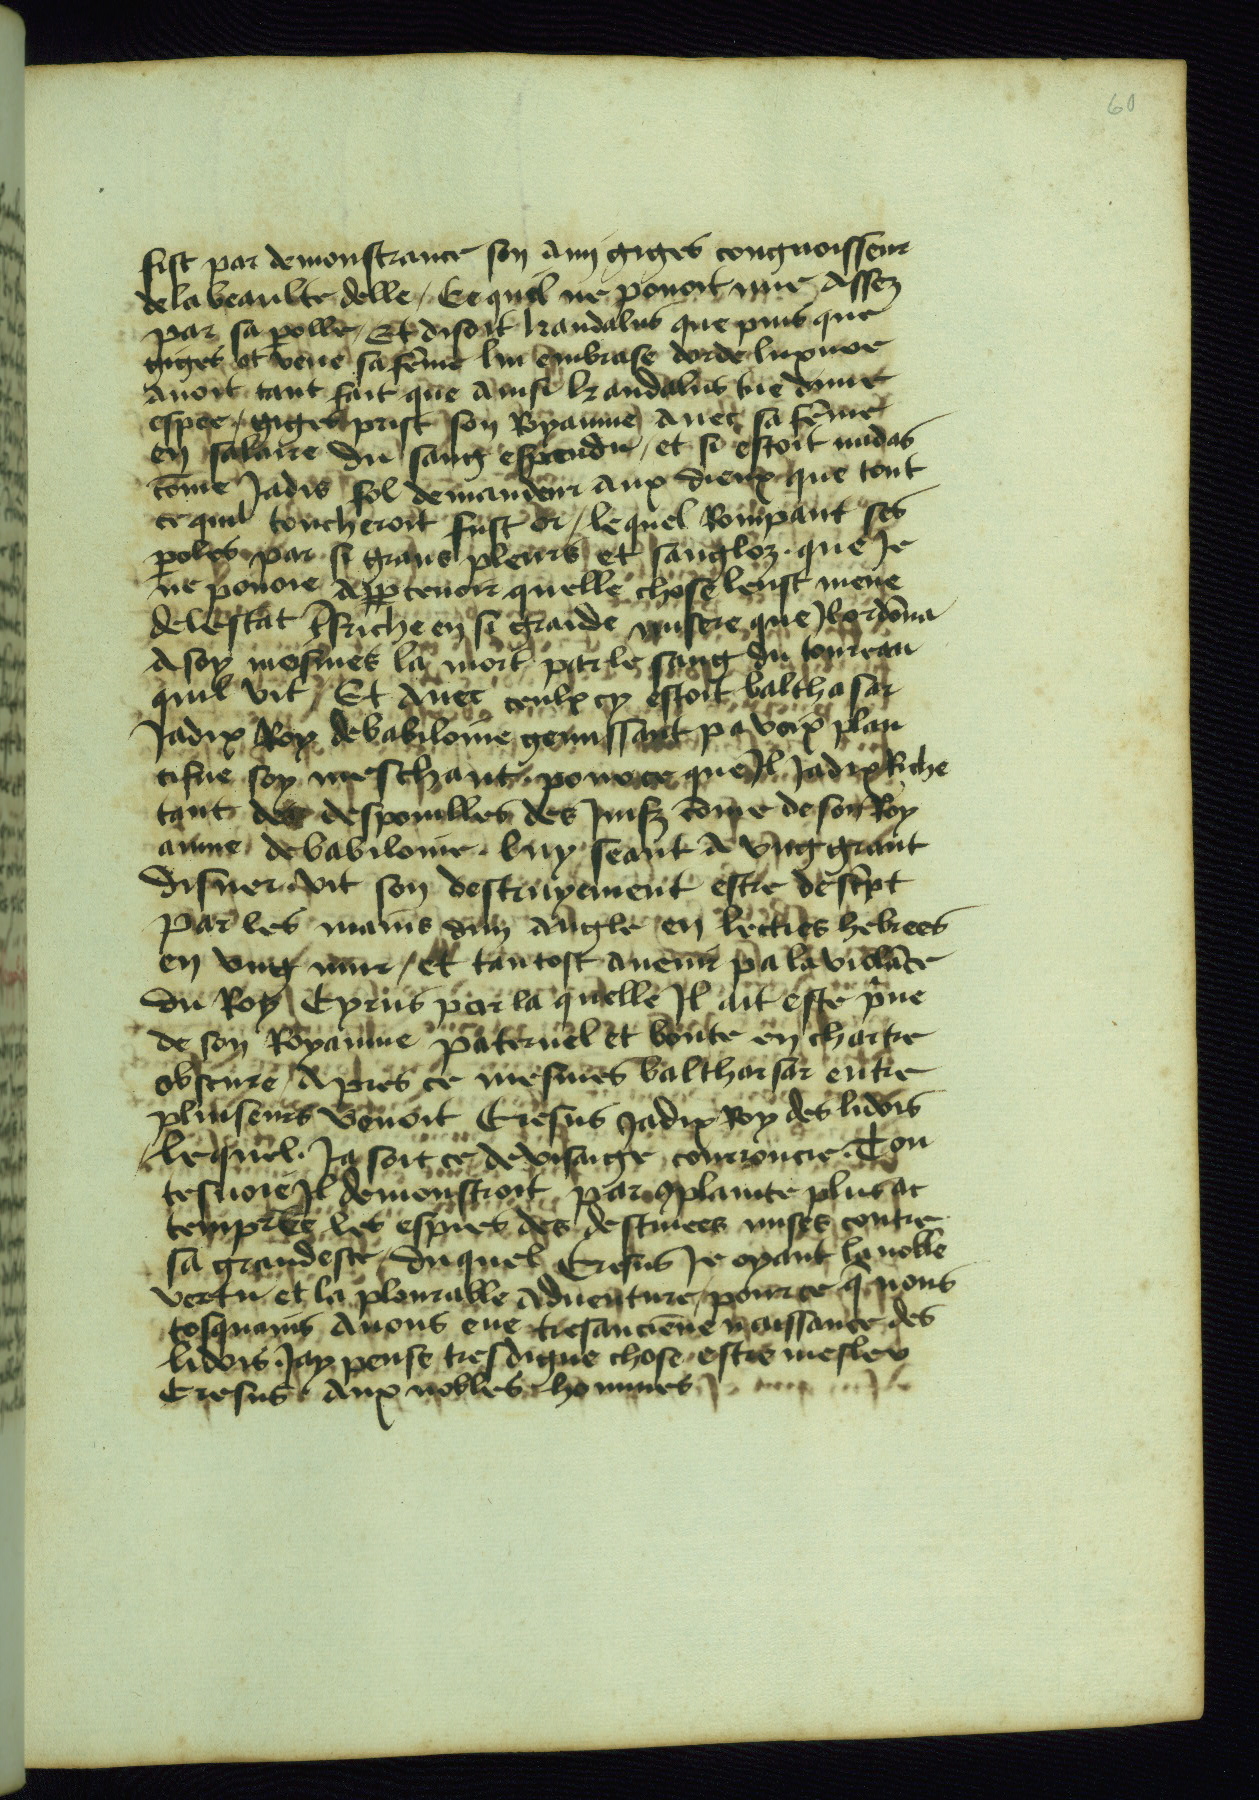 60
fist par demonstrance son amy giges congnoisseur
de la beaulte delle / Ce quil ne povoit mie Assez
par sa polle / Et disoit kandalus que puis que
giges ot veue sa fême lui embrase dorde luxure
Avoit tant fait que Ainsi kandalus tue dune
espee / giges prist son Royaume Avec sa fême
en salaire du sang espendu / et si estoit midas
côme Jadis fol demandeur aux dieux que tout
ce quil toucheroit fust or / lequel Rompant ses
poles par si grans pleurs et sangloz . que Je
ne povoie Appcevoir quelle chose leust mene
de lestat Riche en si grande misere que Il ordôna
A soy mesmes la mort par le sang du toureau
quil vit / Et Avec ceulx cy estoit balthasar
Jadix Roy de babiloine gemissant pa voix plan
tifue soy meschant . pour ce que Il Jadix Riche
tant des despouilles des Juifz côme de son Roy
aume de babiloine . luy seant A ung grant
disner . vit son destruyement estre descpt
par les mains dun Angle en lectres hebrees
en ung mur / et tantost Avenir pa la violâce
du Roy Cyrus par la quelle Il ait este pue
de son Royaume paternel et boute en chartre
obscure / Apres ce mesmes balthasar entre
pluiseurs venoit Cresus Jadix Roy des lidois
lequel . Ja soit ce de visaige courroucie . Tou
tesvoie Il demonstroit par 9plainte
les espies des destinees mises contre
sa grandesce / duquel Cresus Je oyant la noble
vertu et la plourable Adventure / pour ce q nous
tosquains Avons eue tresanciêne naissance des
lidois . Jay pense tresdigne chose estre mesler
Cresus Aux nobles hommes